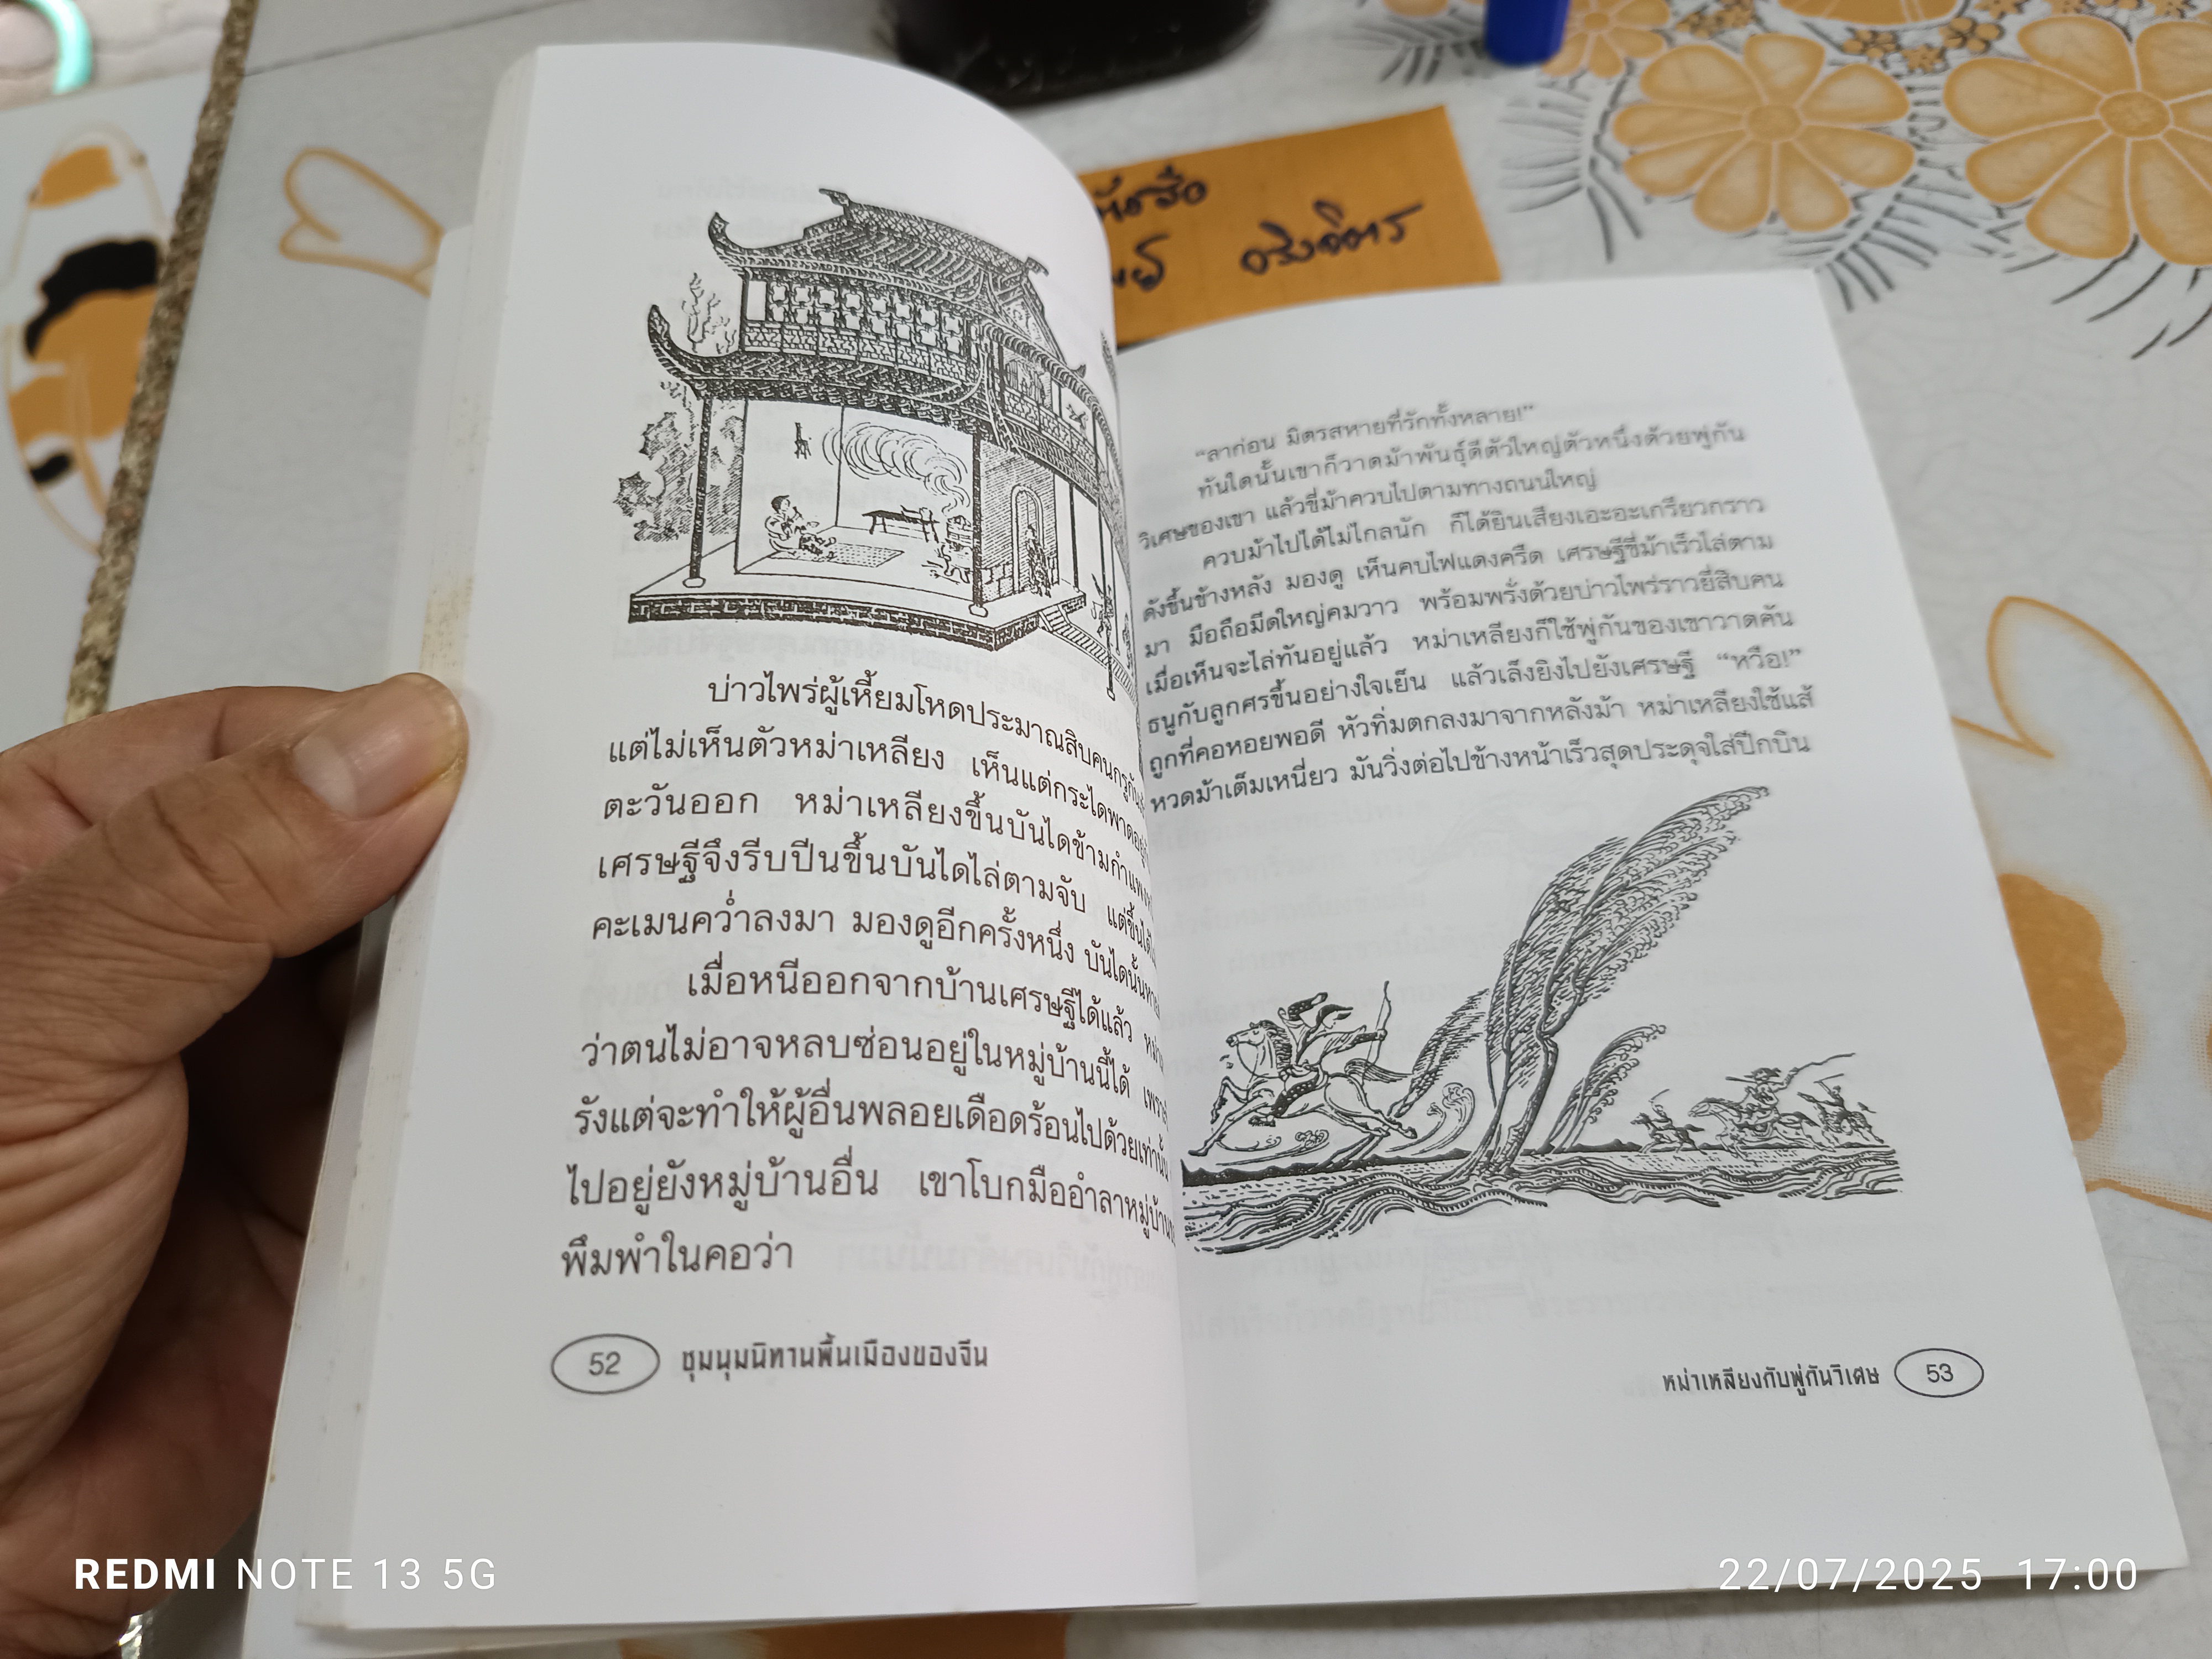 หังสือ
จริงจิตร
บ่าวไพร่ผู้เหี้ยมโหดประมาณสิบคนกรูกัน
แต่ไม่เห็นตัวหม่าเหลียง เห็นแต่กระไดพาดอยู่
ตะวันออก หม่าเหลียงขึ้นบันไดข้ามกำแพง
เศรษฐีจึงรีบปีนขึ้นบันไดไล่ตามจับ แต่ขึ้นได้
คะเมนคว่ำลงมา มองดูอีกครั้งหนึ่ง บันไดนั้น
เมื่อหนีออกจากบ้านเศรษฐีได้แล้ว
ว่าตนไม่อาจหลบซ่อนอยู่ในหมู่บ้านนี้ได้ เพราะ
รังแต่จะทำให้ผู้อื่นพลอยเดือดร้อนไปด้วยเท่านั้น
ไปอยู่ยังหมู่บ้านอื่น เขาโบกมืออำลาหมู่บ้าน
พึมพำในคอว่า
52 ชุมนุมนิทานพื้นเมืองของจีน
“ลาก่อน มิตรสหายที่รักทั้งหลาย!”
ทันใดนั้นเขาก็วาดม้าพันธุ์ดีตัวใหญ่ตัวหนึ่งด้วยพู่กัน
วิเศษของเขา แล้วขี่ม้าควบไปตามทางถนนใหญ่
ควบม้าไปได้ไม่ไกลนัก ก็ได้ยินเสียงเอะอะเกรียวกราว
ดังขึ้นข้างหลัง มองดู เห็นคบไฟแดงครืด เศรษฐีขี่ม้าเร็วไล่ตาม
มา มือถือมีดใหญ่คมวาว พร้อมพรั่งด้วยบ่าวไพร่ราวยี่สิบคน
เมื่อเห็นจะไล่ทันอยู่แล้ว หม่าเหลียงก็ใช้พู่กันของเขาวาดคัน
ธนูกับลูกศรขึ้นอย่างใจเย็น แล้วเล็งยิงไปยังเศรษฐี “หวือ!”
ถูกที่คอหอยพอดี หัวทิ่มตกลงมาจากหลังม้า หม่าเหลียงใช้แส้
หวดม้าเต็มเหนี่ยว มันวิ่งต่อไปข้างหน้าเร็วสุดประดุจใส่ปีกบิน
หม่าเหลียงกับพู่กันวิเศษ 53
REDMI NOTE 13 5G
22/07/2025 17:00